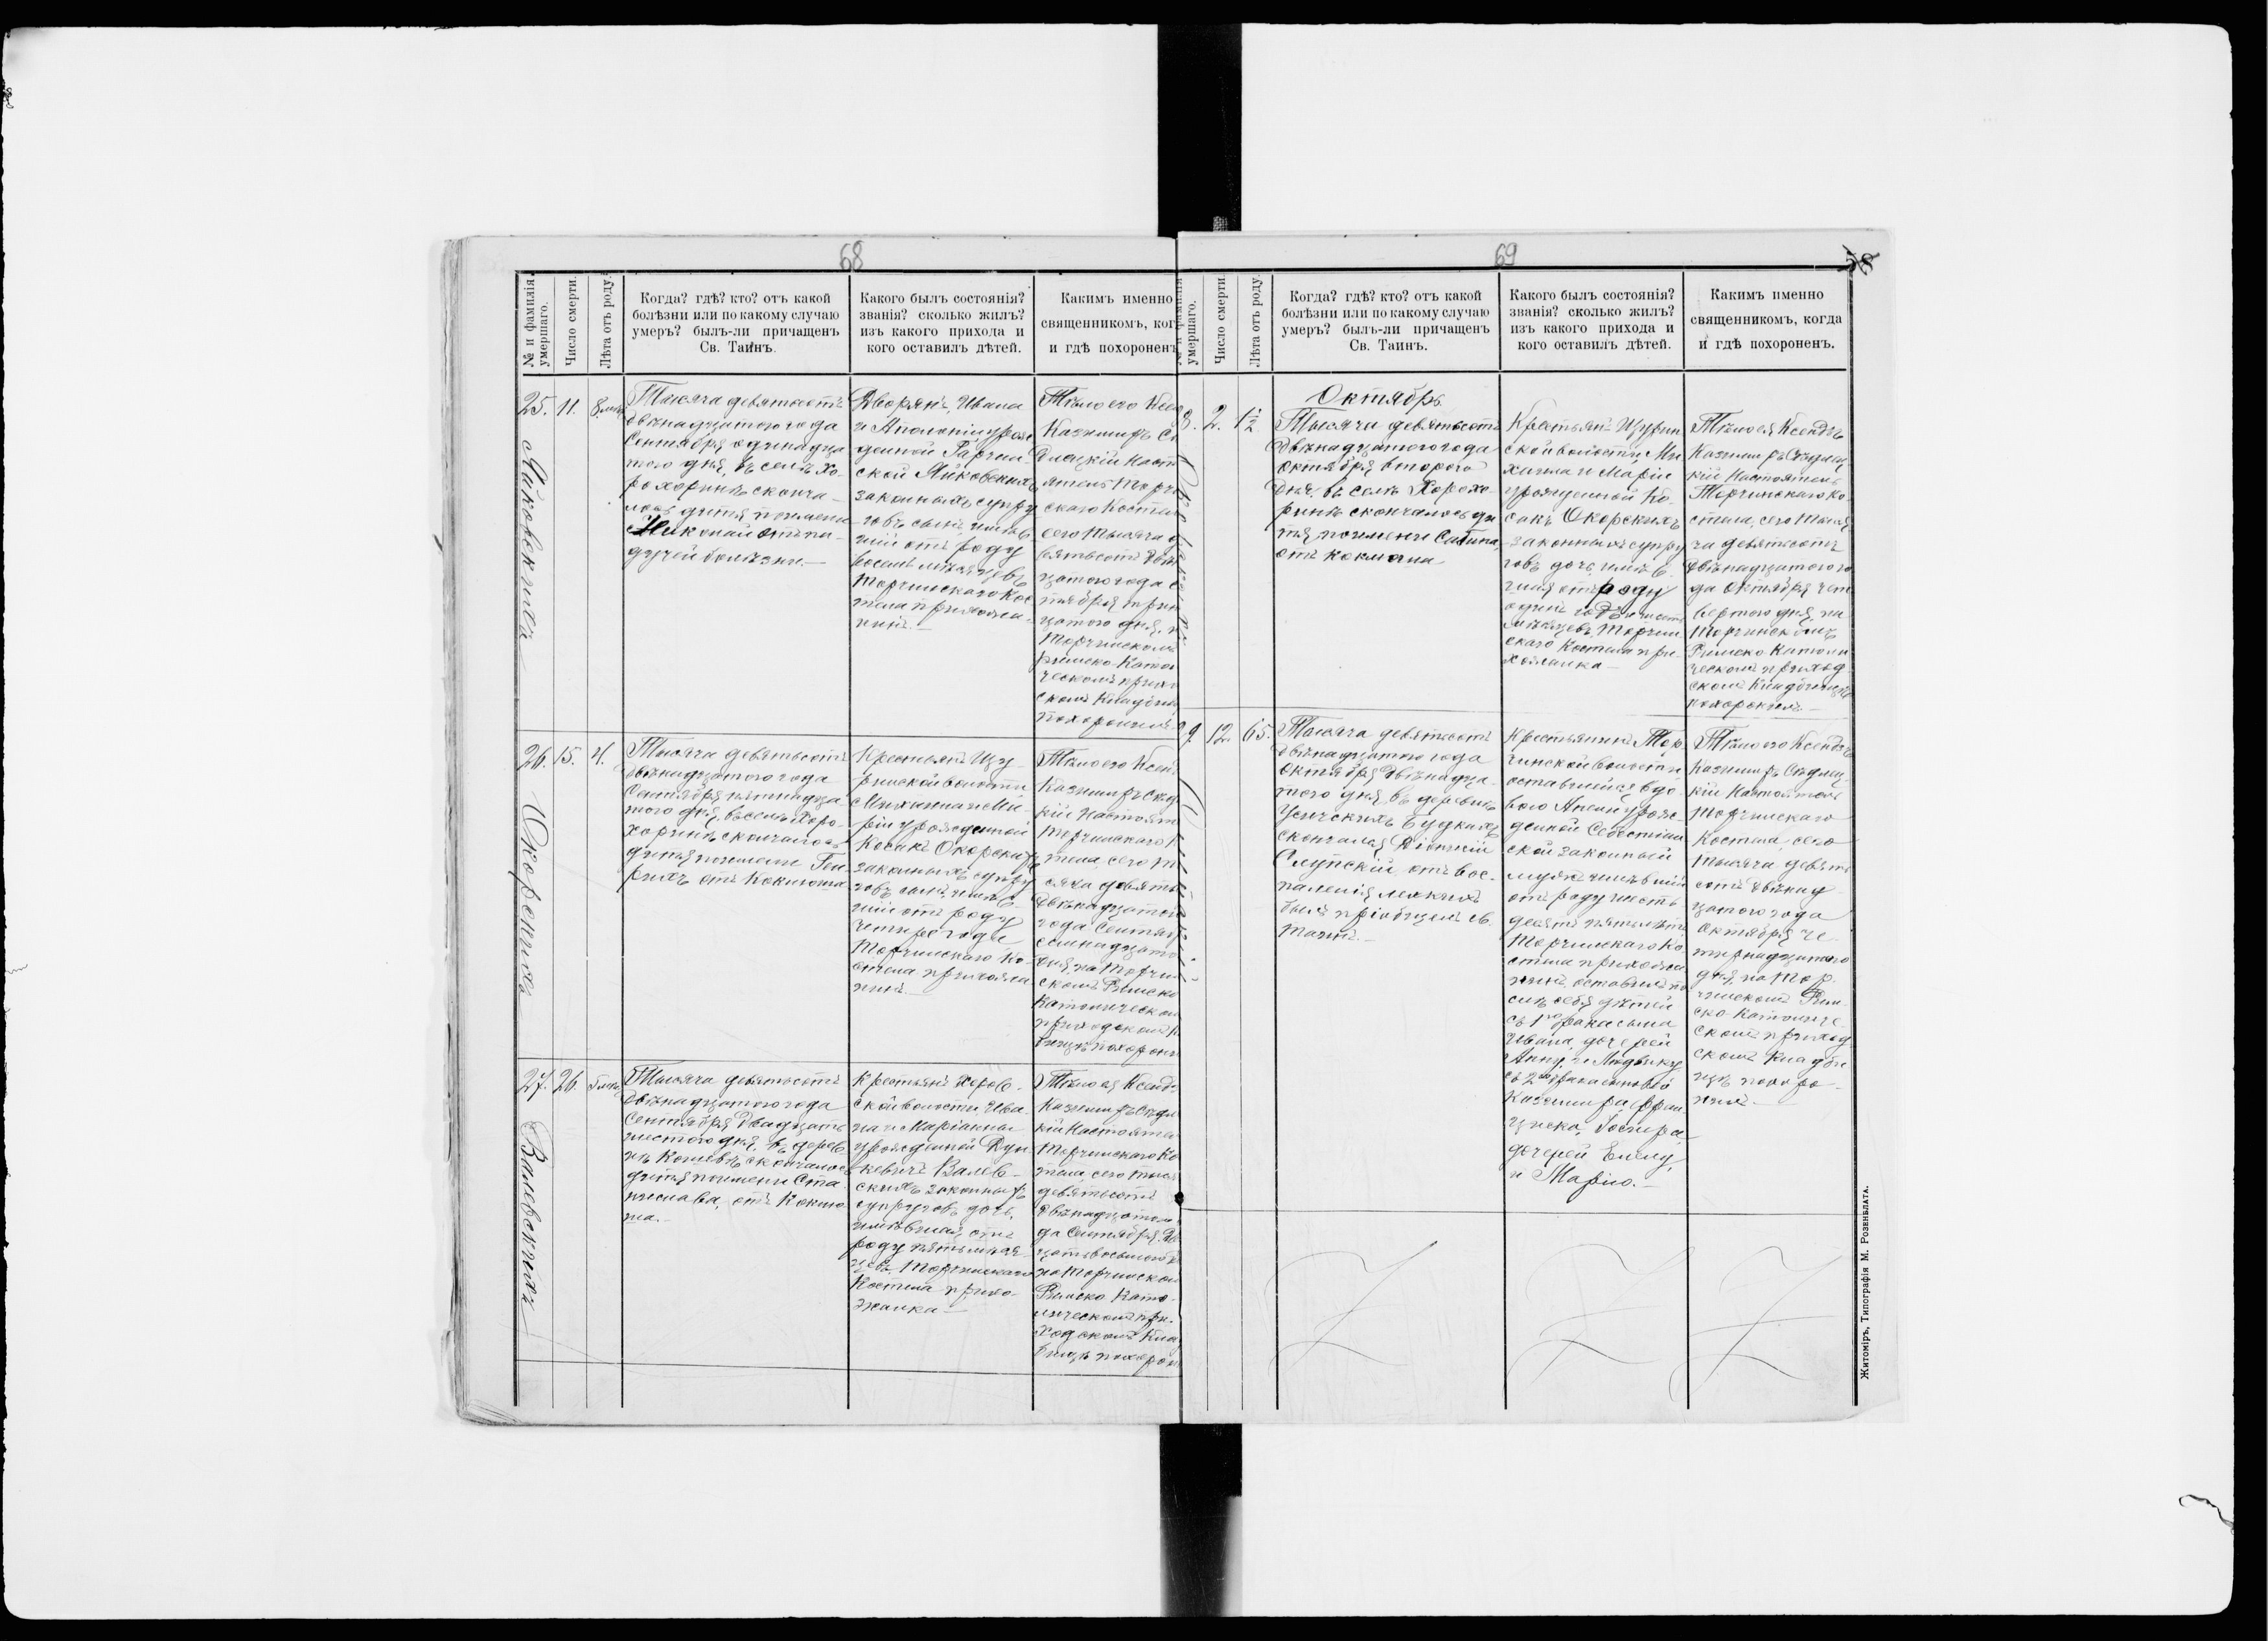 68
№ и фамилія
умершаго.
Число смерти.
Лѣта отъ роду.
Когда? гдѣ? кто? отъ какой
болѣзни или по какому случаю
умеръ? былъ-ли причащенъ
Св. Таинъ.
Какого былъ состоянія?
званія? сколько жилъ?
изъ какого прихода и
кого оставилъ дѣтей.
Какимъ именно
священникомъ, ког
и гдѣ похоронен
25.
11.
8 мѣс
Тысяча девятьсотъ
двѣнадцатого года
Сентября одинадца
того дня, въ селѣ Хо-
рохоринѣ сконча-
лось дитя поимени
Николай отъ па-
дучей болѣзни.—
Дворянъ, Ивана
и Аполоніи урож
денной Гарчин
ской Яйковскихъ
законныхъ супру
говъ сынъ, имѣв
шій отъ роду
восемь мѣсяцевъ
Торчинскаго Кос
тела прихожа-
нинъ.—
Тѣло его Ксен
Казимиръ Сѣ
длецкій Наст
ятель Торчи
скаго Костел
сего Тысяча д
вятьсотъ двѣн
цатого года С
нтября трин
цатого дня, н
Торчинскомъ
римско-Катол
ческомъ прихо
скомъ Кладби
похоронилъ
26.
15.
4.
Тысяча девятьсотъ
двѣнадцатого года
Сентября пятнадца-
того дня, въ селѣ Хоро-
хоринѣ скончалось
дитя поимени Ген
рихъ отъ Коклюша
Крестьянъ Щу
ринской волости
Михаила и Ма-
ріи урожденной
Косакъ Окорскихъ
законныхъ супру
говъ сынъ, имѣв-
шій отъ роду
четыре года
Торчинскаго Ко-
стела прихожа
нинъ.—
Тѣло его Ксен
Казимиръ Сѣд
кій Настоят
Торчинскаго К
тела, сего Т
сяча девять
двѣнадцатого
года Сентяб
семнадцато
дня, на Торчи
скомъ Римско
Католическом
приходскомъ К
бищѣ похорони
27.
26.
5 мѣс
Тысяча девятьсотъ
двѣнадцатого года
Сентября двадцать
шестого дня, въ дерев
нѣ Копевѣ скончалось
дитя поимени Ста
нислава, отъ Коклю
ша.—
Крестьянъ Хоров-
ской волости, Ива
на и Маріанны
урожденной Дун
кевичъ Валев-
скихъ законныхъ
супруговъ дочь,
имѣвшая отъ
роду пять мѣся-
цевъ, Торчинскаго
Костела прихо-
жанка—
Тѣло ея Ксенд
Казимиръ Сѣдл
кій Настояте
Торчинскаго Ко
тела, сего тыся
девятьсотъ
двѣнадцатого
да Сентября, дв
цать восьмого д
на Торчинском
Римско Като-
лическомъ при-
ходскомъ Кла
бищѣ похорон
Окорскихъ
Валевскихъ
69
58
умершаго.
Число смерти.
Лѣта отъ роду.
Когда? гдѣ? кто? отъ какой
болѣзни или по какому случаю
умеръ? былъ-ли причащенъ
Св. Таинъ.
Какого былъ состоянія?
званія? сколько жилъ?
изъ какого прихода и
кого оставилъ дѣтей.
Какимъ именно
священникомъ, когда
и гдѣ похороненъ.
8.
2.
1½
Октябрь
Тысяча девятьсотъ
двѣнадцатого года
Октября второго
дня, въ селѣ Хорохо-
ринѣ скончалось ди
тя поимени Сабина,
отъ коклюша
Крестьянъ Щурин
ской волости Ми
хаила и Маріи
урожденной Ко-
сакъ Окорскихъ
законныхъ супру
говъ дочь, имѣв
шая отъ роду
одинъ годъ и шесть
мѣсяцевъ, Торчин
скаго Костела при-
хожанка—
Тѣло ея Ксендзъ
Казимиръ Сѣдлец
кій Настоятель
Торчинскаго Ко-
стела, сего Тыся
ча девятьсотъ
двѣнадцатого го
да Октября чет
вертого дня, на
Торчинскомъ
Римско Католи
ческомъ приход
скомъ Кладбищѣ
похоронилъ—
9.
12.
65.
Тысяча девятьсотъ
двѣнадцатого года
Октября двѣнадца-
того дня въ деревнѣ
Усичскихъ Будкахъ
скончался Діонизій
Слупскій отъ вос-
паленія легкихъ
былъ пріобщенъ св.
таинъ.—
Крестьянинъ Тор
чинской волости
оставшійся вдо-
вого Анели урож
денной Себестіян
ской законный
мужъ имѣвшій
отъ роду шесть
десятъ пять лѣтъ
Торчинскаго Ко
стела прихожа
нинъ оставилъ по
слѣ себя дѣтей
съ 1го брака сына
Ивана, дочерей
Анну, и Людвику
съ 2го брака сыновей
Казимира, Фран
циска, Госпера,
дочерей Елену,
и Марію.—
Тѣло его Ксендзъ
Казимиръ Сѣдлец
кій Настоятель
Торчинскаго
Костела, сего
Тысяча девять
сотъ двѣнад
цатого года
Октября че-
тырнадцатого
дня, на Тор
чинскомъ Рим-
ско-Католиче
скомъ приход
скомъ Кладби
щѣ похоро-
нилъ—
Житоміръ, Типографія М. Розенблата.